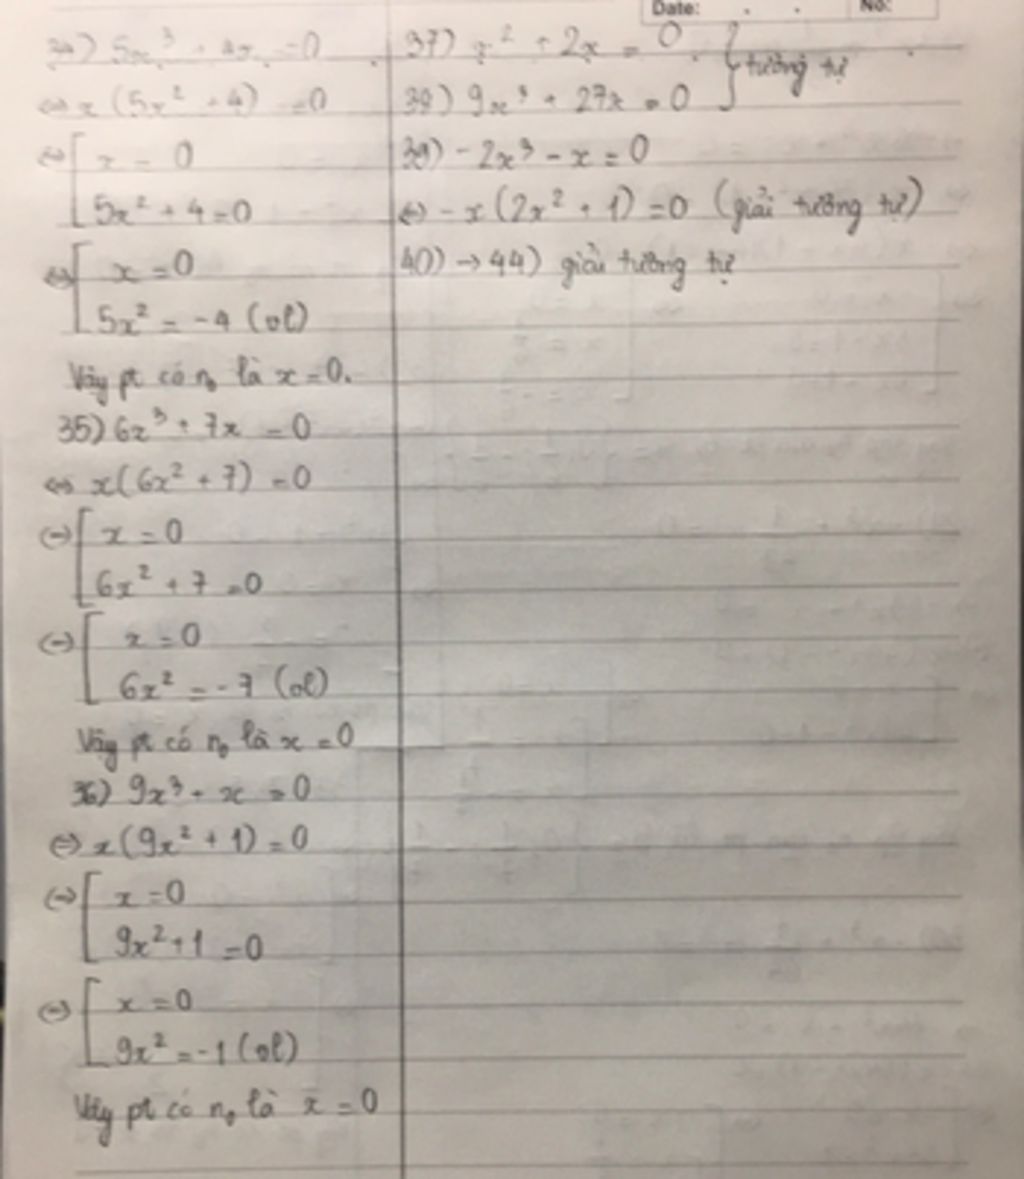 Date: No:
34) 5x³ + 4x = 0
⇔ x (5x² + 4) = 0
⇔ [ x = 0
5x² + 4 = 0
⇔ [ x = 0
5x² = -4 (ol)
Vậy pt có n₀ là x = 0.
35) 6x³ + 7x = 0
⇔ x(6x² + 7) = 0
⇔ [ x = 0
6x² + 7 = 0
⇔ [ x = 0
6x² = -7 (ol)
Vậy pt có n₀ là x = 0
36) 9x³ + x = 0
⇔ x(9x² + 1) = 0
⇔ [ x = 0
9x² + 1 = 0
⇔ [ x = 0
9x² = -1 (ol)
Vậy pt có n₀ là x = 0
37) x² + 2x = 0 } tương tự
38) 9x³ + 27x = 0
39) - 2x³ - x = 0
⇔ - x (2x² + 1) = 0 (giải tương tự)
40) → 44) giải tương tự